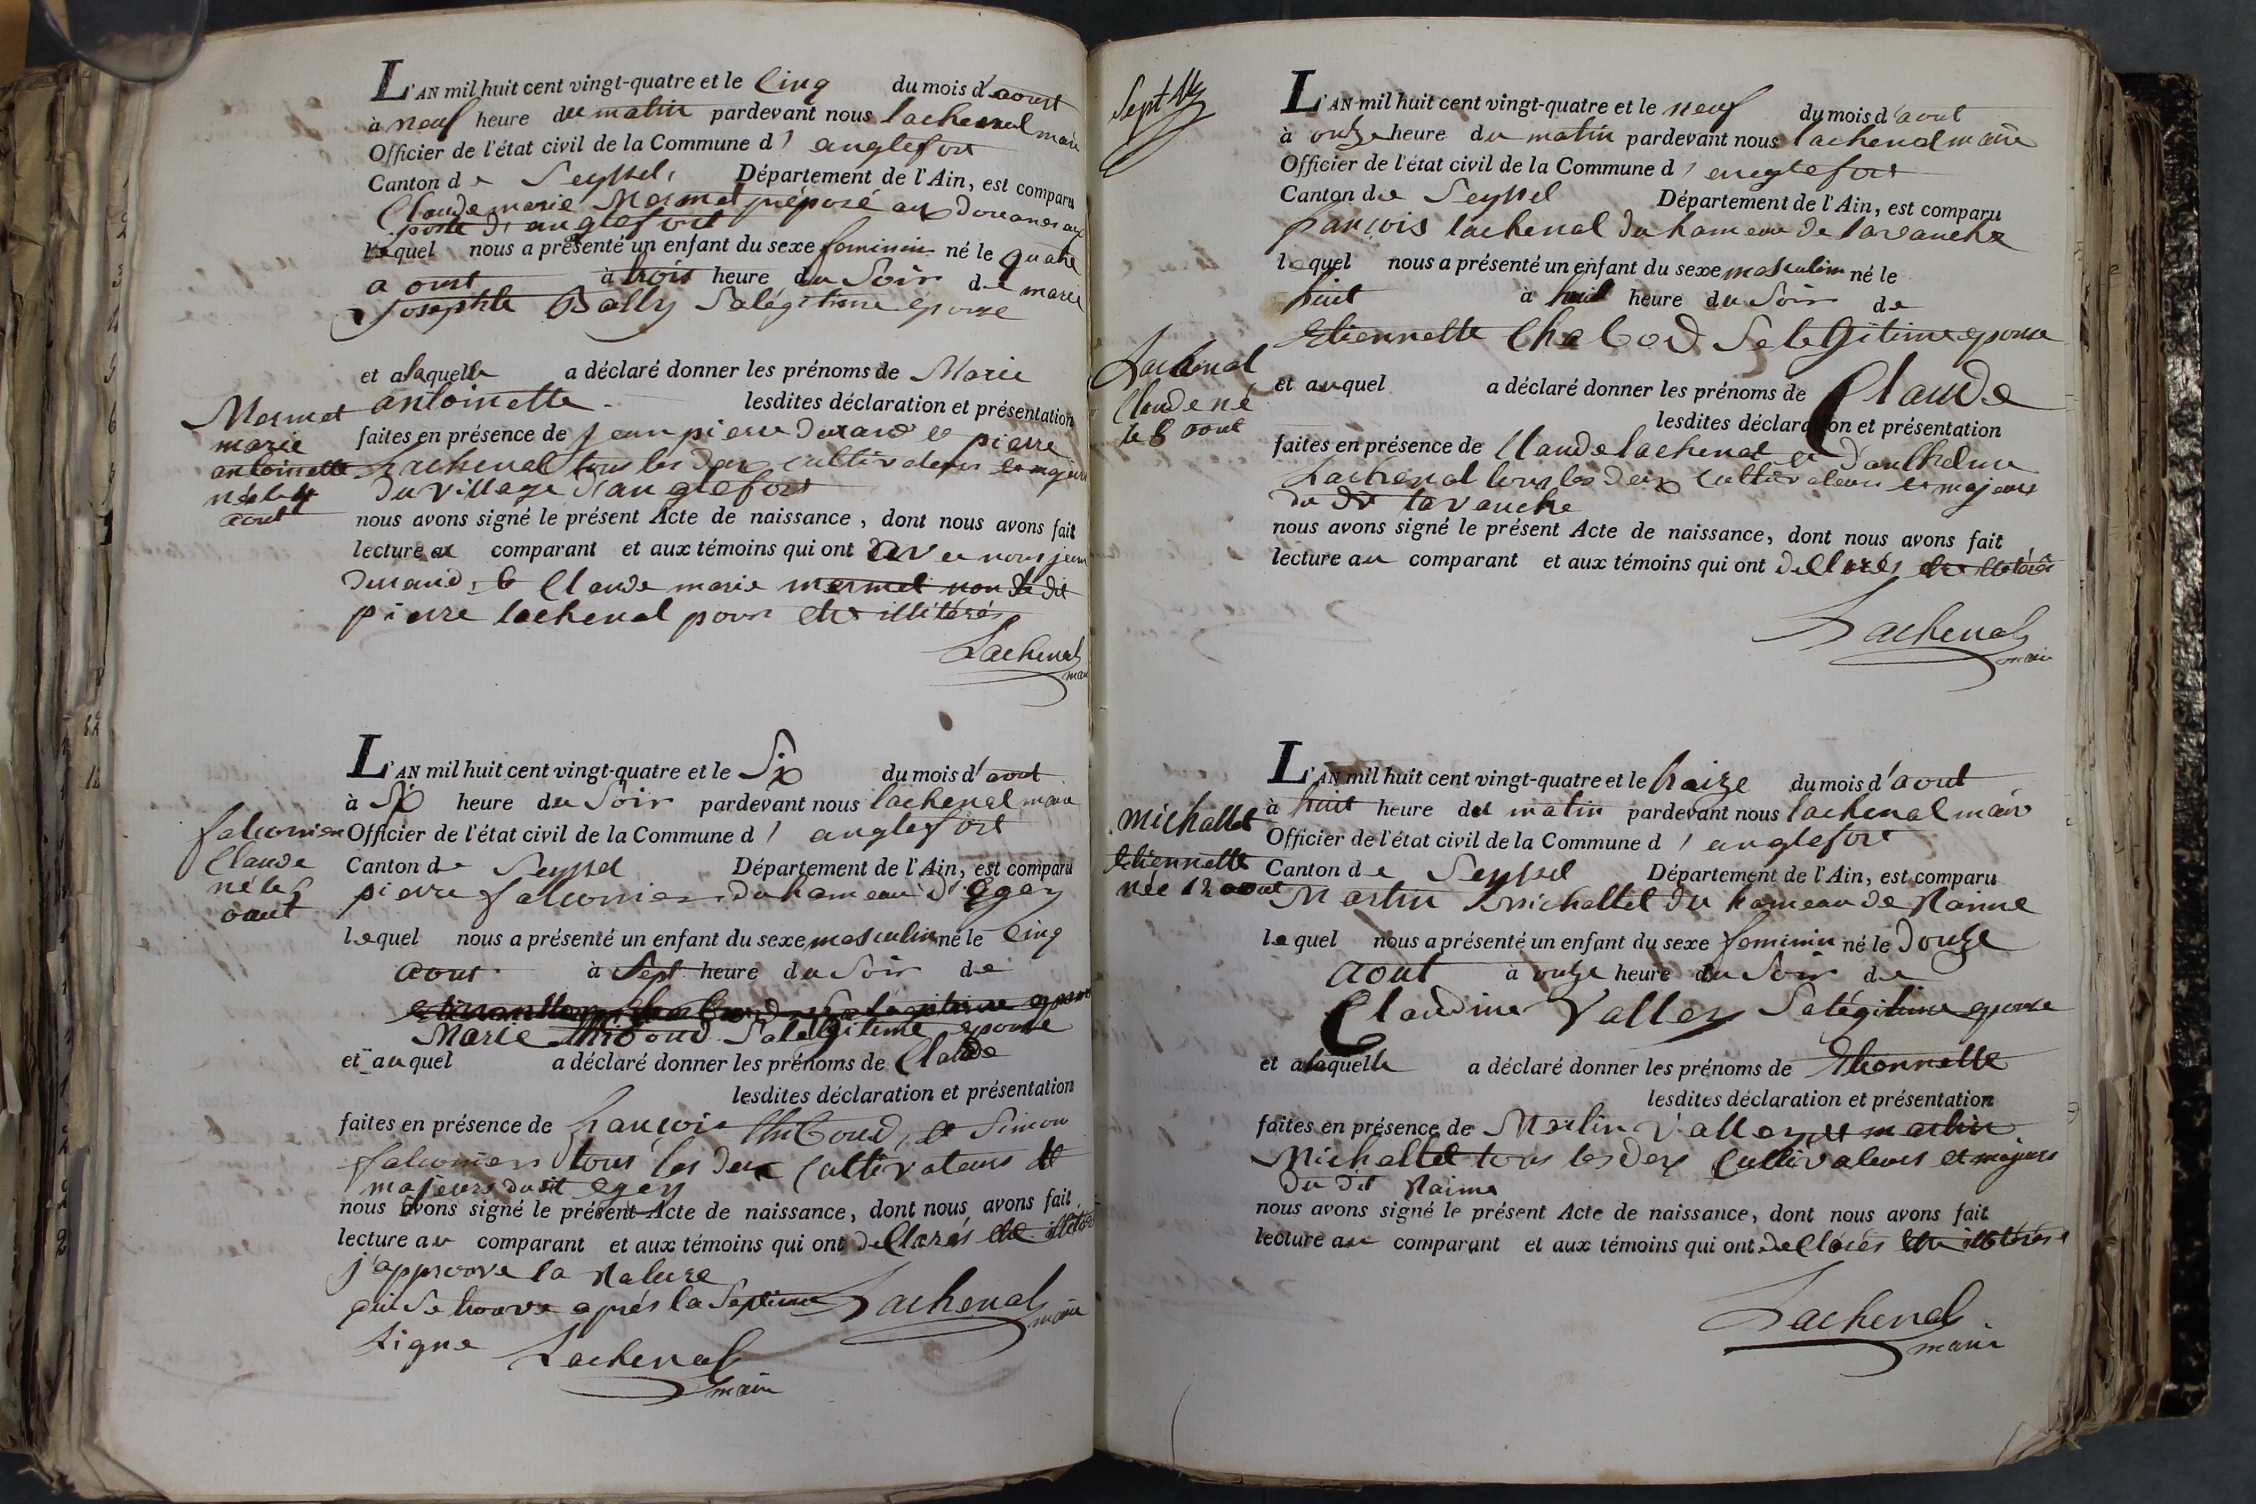 L'AN mil huit cent vingt-quatre et le Cinq du mois d'aoust
à neuf heure du matin pardevant nous lachenal maire
Officier de l'état civil de la Commune d' anglefort
Canton de Seyssel, Département de l'Ain, est comparu
Claude marie Mermet préposé aux douanes au
poste d'anglefort
lequel nous a présenté un enfant du sexe feminin né le quatre
aoust à trois heure du Soir de marie
josephte Bally Salégitime epouse
et alaquelle a déclaré donner les prénoms de Marie
antoinette. lesdites déclaration et présentation
faites en présence de jean pierre durand et pierre
Lachenal tous les deux cultivateurs et majeurs
du village d'anglefort
nous avons signé le présent Acte de naissance, dont nous avons fait
lecture au comparant et aux témoins qui ont avec nous jean
durand, & Claude marie mermet non le dit
pierre lachenal pour etre illitérés
Lachenal
maire
Mermet
marie
antoinette
née le 4
aout
L'AN mil huit cent vingt-quatre et le Six du mois d'aout
à Six heure du Soir pardevant nous lachenal maire
Officier de l'état civil de la Commune d' anglefort
Canton de Seyssel Département de l'Ain, est comparu
pierre falconier du hameau d'Egey
lequel nous a présenté un enfant du sexe masculin né le Cinq
aout à Sept heure du Soir de
Marie thiboud Salegitime epouse
et auquel a déclaré donner les prénoms de Claude
lesdites déclaration et présentation
faites en présence de françois thiboud, et Simon
falconier tous les deux cultivateurs et
majeurs dudit egey
nous avons signé le présent Acte de naissance, dont nous avons fait
lecture au comparant et aux témoins qui ont déClarés etre illitérés
j'approuve la Rature
qui se trouve aprés la Septieme
Ligne
Lachenal
maire
Lachenal
maire
falconier
Claude
né le 5
aout
Sept
L'AN mil huit cent vingt-quatre et le neuf du mois d'aout
à onze heure du matin pardevant nous lachenal maire
Officier de l'état civil de la Commune d' anglefort
Canton de Seyssel Département de l'Ain, est comparu
françois lachenal du hameau de lavanche
lequel nous a présenté un enfant du sexe masculin né le
huit à huit heure du Soir de
Etiennette Chabod Salegitime epouse
et auquel a déclaré donner les prénoms de Claude
lesdites déclaration et présentation
faites en présence de Claude lachenal et d'anthelme
Lachenal tous les deux cultivateurs et majeurs
du dit lavanche
nous avons signé le présent Acte de naissance, dont nous avons fait
lecture au comparant et aux témoins qui ont déClarés etre illitérés
Lachenal
maire
Lachenal
Claude né
le 8 aout
L'AN mil huit cent vingt-quatre et le traize du mois d'aout
à huit heure du matin pardevant nous lachenal maire
Officier de l'état civil de la Commune d' anglefort
Canton de Seyssel Département de l'Ain, est comparu
Martin Michallet du hameau de
lequel nous a présenté un enfant du sexe feminin né le douze
aout à onze heure du Soir de
Claudine Valley Salégitime epouse
et alaquelle a déclaré donner les prénoms de Etiennette
lesdites déclaration et présentation
faites en présence de Merlin Valley et martin
Michallet tous les deux Cultivateurs et majeurs
du dit
nous avons signé le présent Acte de naissance, dont nous avons fait
lecture au comparant et aux témoins qui ont déClarés etre illitérés
Lachenal
maire
Michallet
Etiennette
née 12 aout